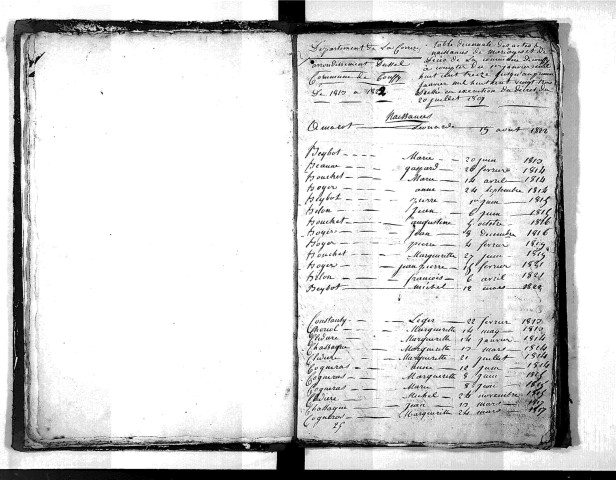 Département de La Corrèze
arrondissement d'ussel
Commune de Couffy
De 1813 a 1822
table décennale des actes de
naissances de mariages et de
Décès de la commune de Couffy
à compter du 1er janvier mille
huit cent treize jusqu'au premier
janvier mil huit cent vingt trois
en execution du décret du
20 juillet 1807
Naissances
Leonarde 15 aout 1822
Beybot Marie 20 juin 1813
gaspard 26 fevrier 1814
Bouchet Marie 14 avril 1814
Boyer anne 24 septembre 1814
Beybot pierre 1er juin 1815
jean 6 juin 1815
Bouchet augustine 5 octobre 1816
Boyer jean 8 decembre 1816
Boyer pierre 4 fevrier 1819
Bouchet Marguerite 27 juin 1819
Boyer jean pierre 15 fevrier 1821
françois 6 avril 1821
Beybot michel 12 mars 1822
Constanty Leger 22 fevrier 1813
Marguerite 14 may 1813
Marguerite 14 janvier 1814
Chassagne Marguerite 13 mars 1814
Marguerite 21 juillet 1814
Cogneras anne 12 juin 1814
Cogneras Marguerite 8 juin 1815
Cogneras Marie 8 juin 1815
Michel 24 novembre 1815
Chassagne jean 13 mars 1817
Cogneras Marguerite 24 mars 1817
25